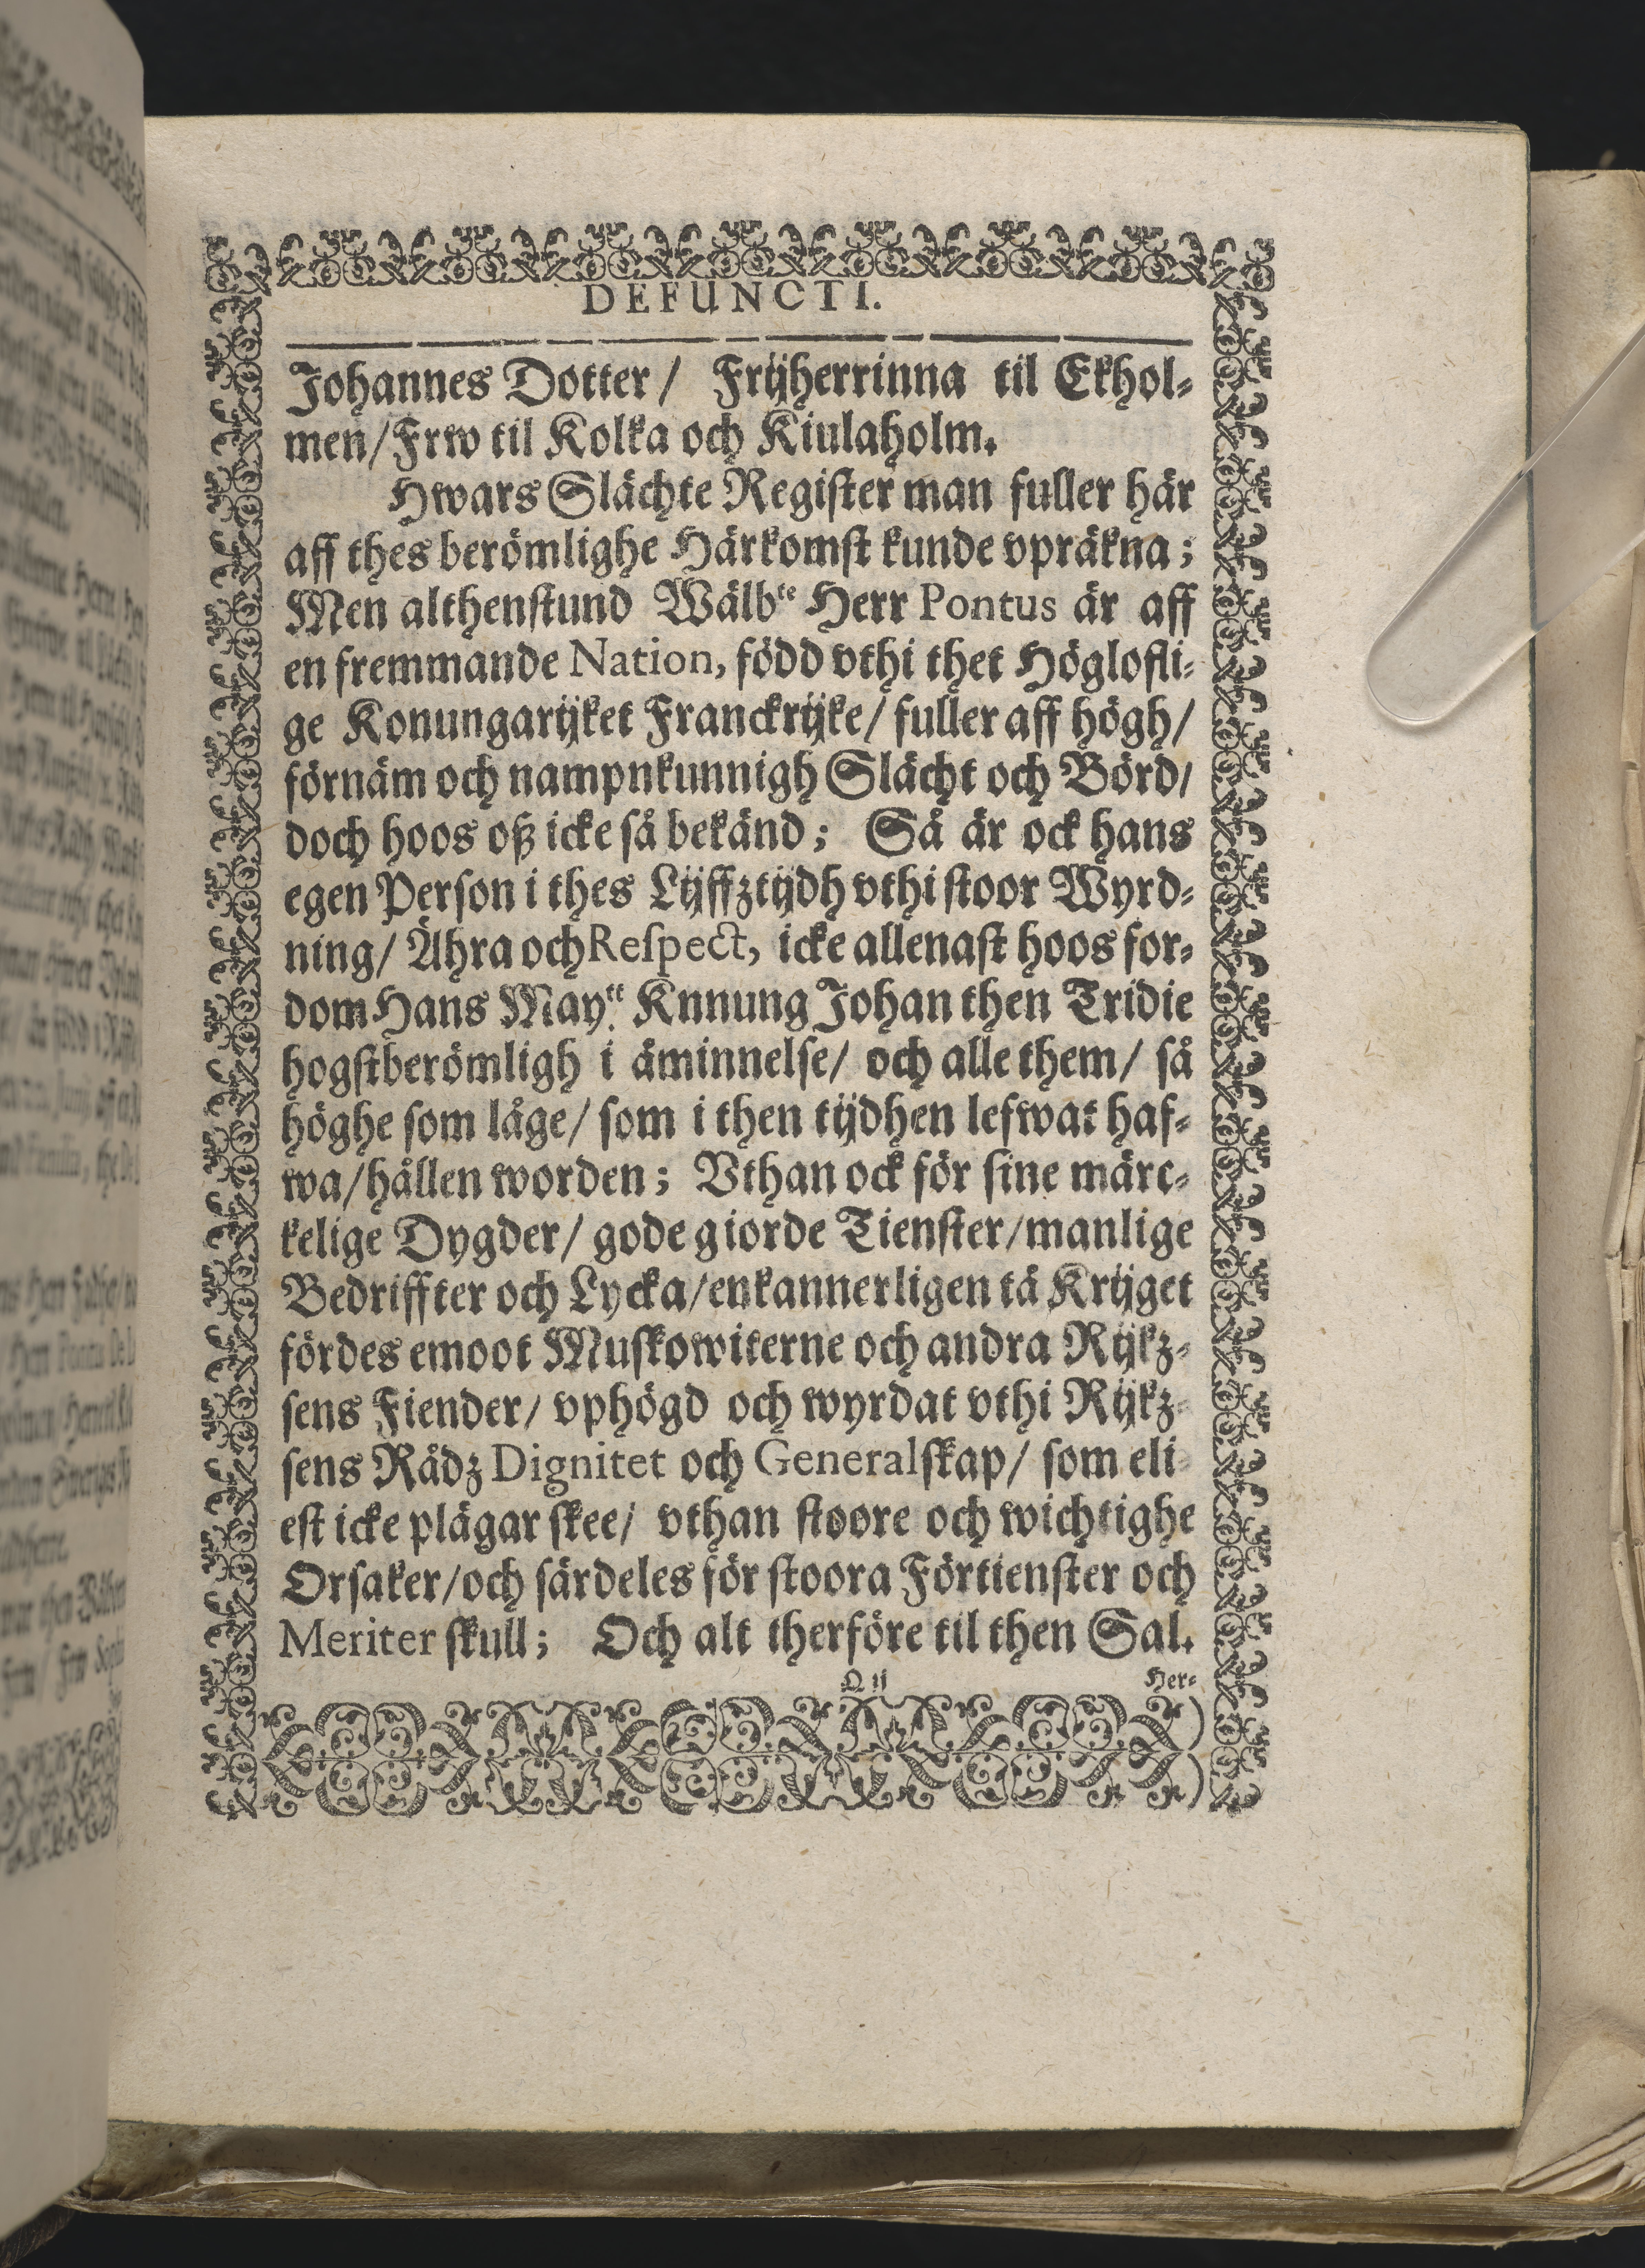 DEFUNCTI.
Johannes Dotter / Frijherrinna til Ekhol-
men/Frw til Kolka och Kiulaholm.
Hwars Slächte Register man fuller här
aff thes berömlighe Härkomst kunde vpräkna;
Men althenstund Wälbte Herr Pontus är aff
en fremmande Nation, född vthi thet Höglofli-
ge Konungarijket Franckrijke/ fuller aff högh/
förnäm och nampnkunnigh Slächt och Börd/
doch hoos oß icke så bekänd; Så är ock hans
egen Person i thes Lijffztijdh vthi stoor Wyrd-
ning/ Ähra och Respect, icke allenast hoos for-
dom Hans May.tt Knnung Johan then Tridie
hogstberömligh i åminnelse/ och alle them/ så
höghe som låge/ som i then tijdhen lefwat haf-
wa/hållen worden; Vthan ock för sine märc-
kelige Dygder/ gode giorde Tienster/manlige
Bedriffter och Lycka/enkannerligen tå Krijget
fördes emoot Muskowiterne och andra Rijkz-
sens Fiender/ vphögd och wyrdat vthi Rijkz-
sens Rådz Dignitet och Generalskap/ som eli-
est icke plägar skee/ vthan stoore och wichtighe
Orsaker/och särdeles för stoora Förtienster och
Meriter skull; Och alt therföre til then Sal.
Q ij Her-